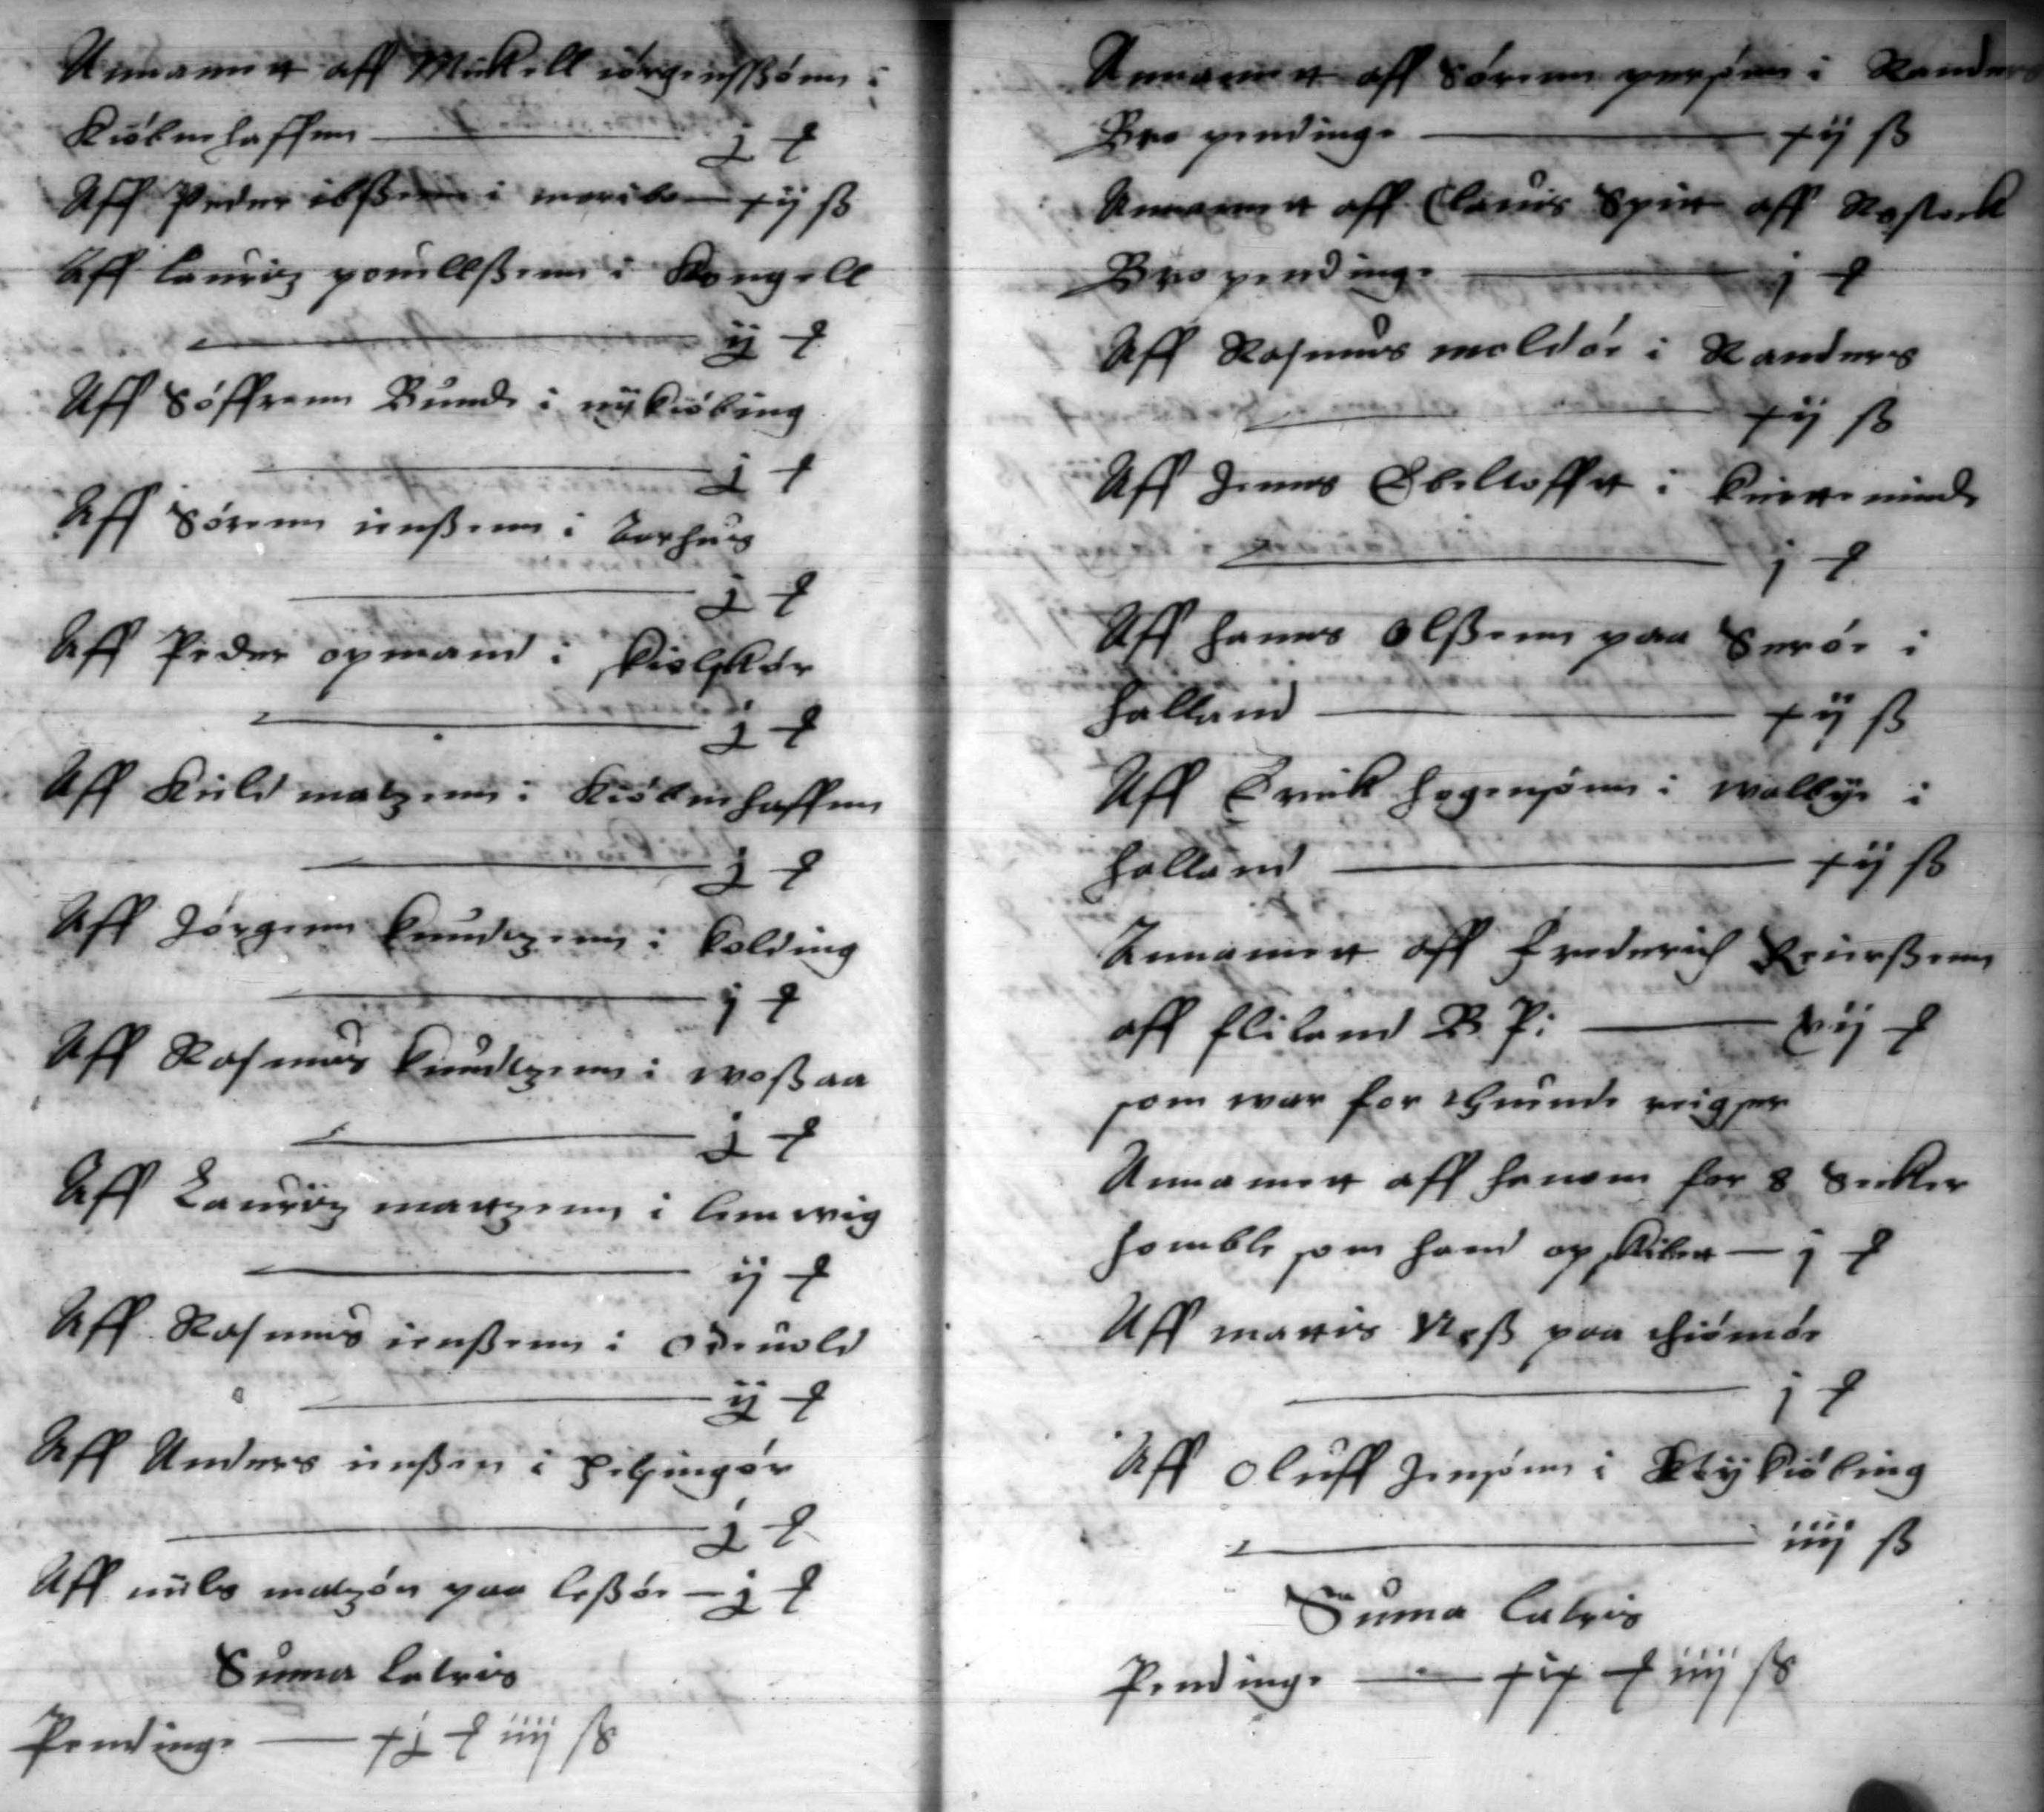 Annamett aff Mickell iörgensßönn i
Kiöbnehaffnn — j ꝑ
Aff Peder ibßenn i maribo — xij ß
Aff lauritz pouellßenn i Kongell
— ij ꝑ
Aff Söffrenn Bunde i nÿkiöbing
— j ꝑ
Aff Sörenn ienßenn i Aarhus
— j ꝑ
Aff Peder opmand i skielskör
— j ꝑ
Aff Kield matzenn i Kiöbnehaffnn
— j ꝑ
Aff Jörgenn knudtzenn i kolding
— j ꝑ
Aff Rasmus knudtzenn i woßaa
— j ꝑ
Aff Lauritz mattzenn i lemwig
— ij ꝑ
Aff Rasmus ienßenn i odeuold
— ij ꝑ
Aff Anders ienßen i helsingör
— j ꝑ
Aff niels matzön paa leßöe — j ꝑ
Suma lateris
Pendinge — xj ꝑ iiij ß
Annamett aff Sörenn persönn i Randers
Bro pendinge — xij ß
Annamett aff Claus Spitt aff Rostock
Bro pendinge — j ꝑ
Aff Rasmus moldöe i Randers
— xij ß
Aff Jenns Ebeltofft i kierteminde
— j ꝑ
Aff hanns olßenn paa Seröe i
halland — xij ß
Aff Erick hogensönn i walbÿe i
halland — xij ß
Annamett aff Frederich Reierßenn
aff fliland B P: — vij ꝑ
som war for thiunde reigser
Annamett aff hanom for 8 Secker
homble som hand opskibett — j ꝑ
Aff mattis Neß paa thiömöe
— j ꝑ
Aff oluff Jensönn i Nÿkiöbing
— iiij ß
Suma lateris
Pendinge — xix ꝑ iiij ß